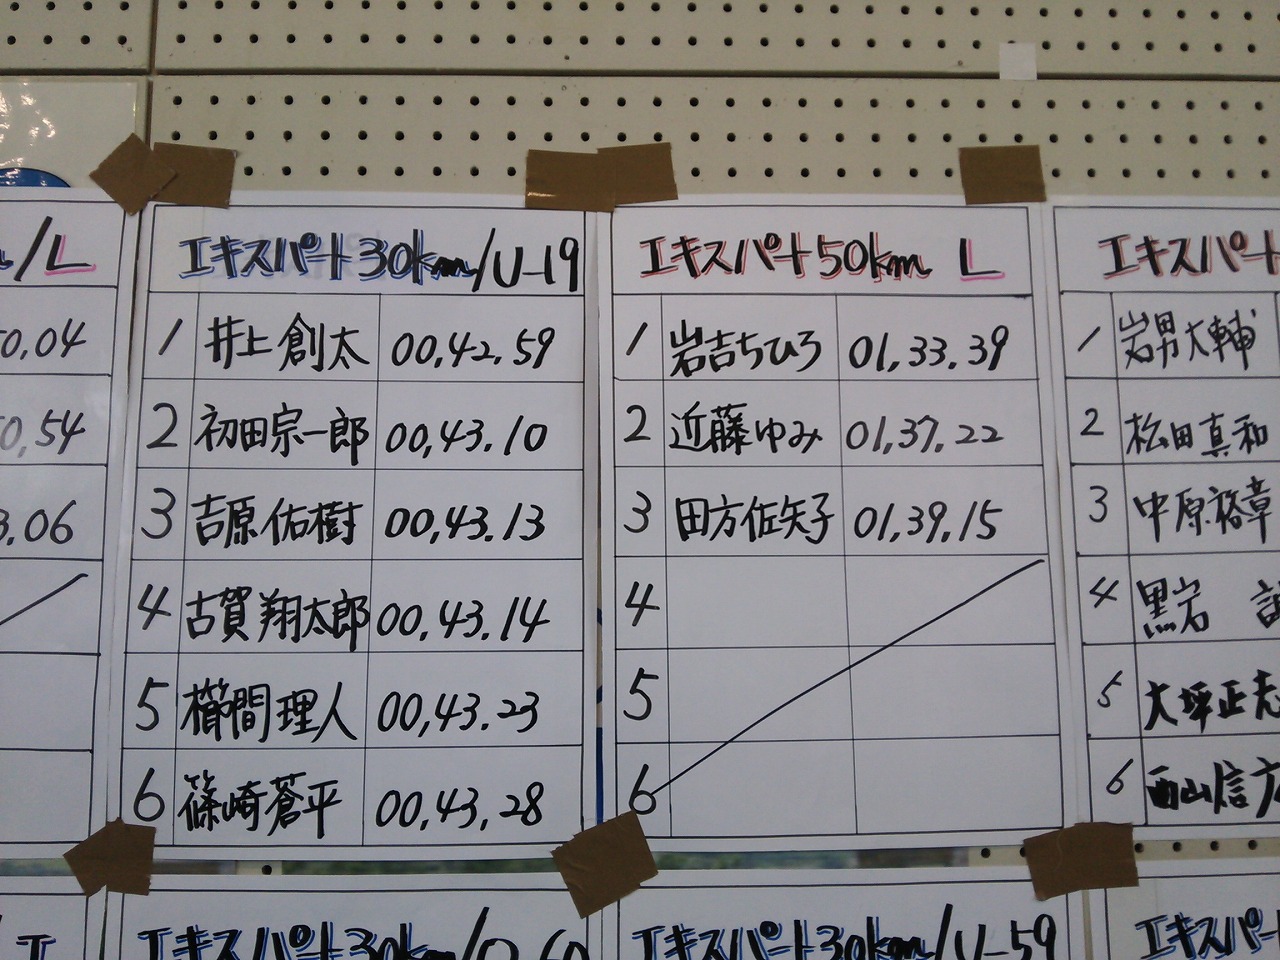 /L
0.04
0,54
3.06
エキスパート30km/U-19
1 井上創太 00,42.59
2 初田宗一郎 00,43.10
3 吉原佑樹 00,43.13
4 古賀翔太郎 00,43.14
5 櫛間理人 00,43.23
6 篠崎蒼平 00,43,28
エキスパート50km L
1 岩吉ちひろ 01,33.39
2 近藤ゆみ 01,37.22
3 田方佐矢子 01,39,15
4
5
6
エキスパート
1 岩男大輔
2 松田真和
3 中原裕章
4 黒岩
5 大坪正志
6 西山信
エキスパート30km/O-60
エキスパート30km/U-59
エキスパ